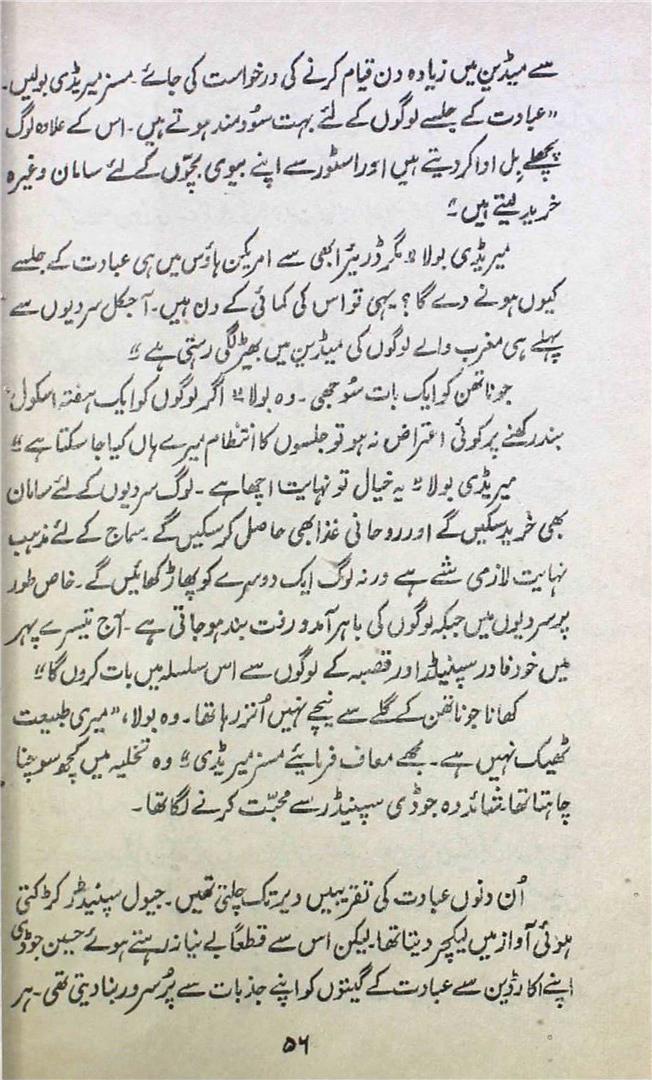 سے میڈین میں زیادہ دن قیام کرنے کی درخواست کی جائے۔ مسز میریڈی بولیں۔
”عبادت کے جلسے لوگوں کے لئے بہت سُود مند ہوتے ہیں۔ اس کے علاوہ لوگ
پچھلے بِل ادا کر دیتے ہیں اور اسٹور سے اپنے بیوی بچّوں کے لئے سامان وغیرہ
خرید لیتے ہیں۔“
میریڈی بولا ”مگر ڈریئر ابھی سے امریکن ہاؤس میں ہی عبادت کے جلسے
کیوں ہونے دے گا؟ یہی تو اس کی کمائی کے دن ہیں۔ آجکل سردیوں سے
پہلے ہی مغرب والے لوگوں کی میڈین میں بھیڑ لگی رہتی ہے“
جوناتھن کو ایک بات سُوجھی۔ وہ بولا ”اگر لوگوں کو ایک ہفتہ اسکول
بند رکھنے پر کوئی اعتراض نہ ہو تو جلسوں کا انتظام میرے ہاں کیا جا سکتا ہے“
میریڈی بولا ”یہ خیال تو نہایت اچھا ہے۔ لوگ سردیوں کے لئے سامان
بھی خرید سکیں گے اور روحانی غذا بھی حاصل کر سکیں گے۔ سماج کے لئے مذہب
نہایت لازمی شے ہے ورنہ لوگ ایک دوسرے کو پھاڑ کھائیں گے۔ خاص طور
پر سردیوں میں جبکہ لوگوں کی باہر آمد و رفت بند ہو جاتی ہے۔ آج تیسرے پہر
میں خود فادر سپنیڈر اور قصبہ کے لوگوں سے اس سلسلہ میں بات کروں گا“
کھانا جوناتھن کے گلے سے نیچے نہیں اُتر رہا تھا۔ وہ بولا، ”میری طبیعت
ٹھیک نہیں ہے۔ مجھے معاف فرمایئے مسز میریڈی“ وہ تخلیہ میں کچھ سوچنا
چاہتا تھا۔ شائد وہ جوڈی سپنیڈر سے محبّت کرنے لگا تھا۔
اُن دنوں عبادت کی تقریبیں دیر تک چلتی تھیں۔ جیول سپنیڈر کڑکتی
ہوئی آواز میں لیکچر دیتا تھا۔ لیکن اس سے قطعاً بے نیاز رہتے ہوئے حسین جوڈی
اپنے اکارڈین سے عبادت کے گیتوں کو اپنے جذبات سے پُرسرور بنا دیتی تھی۔ ہر
۵۶